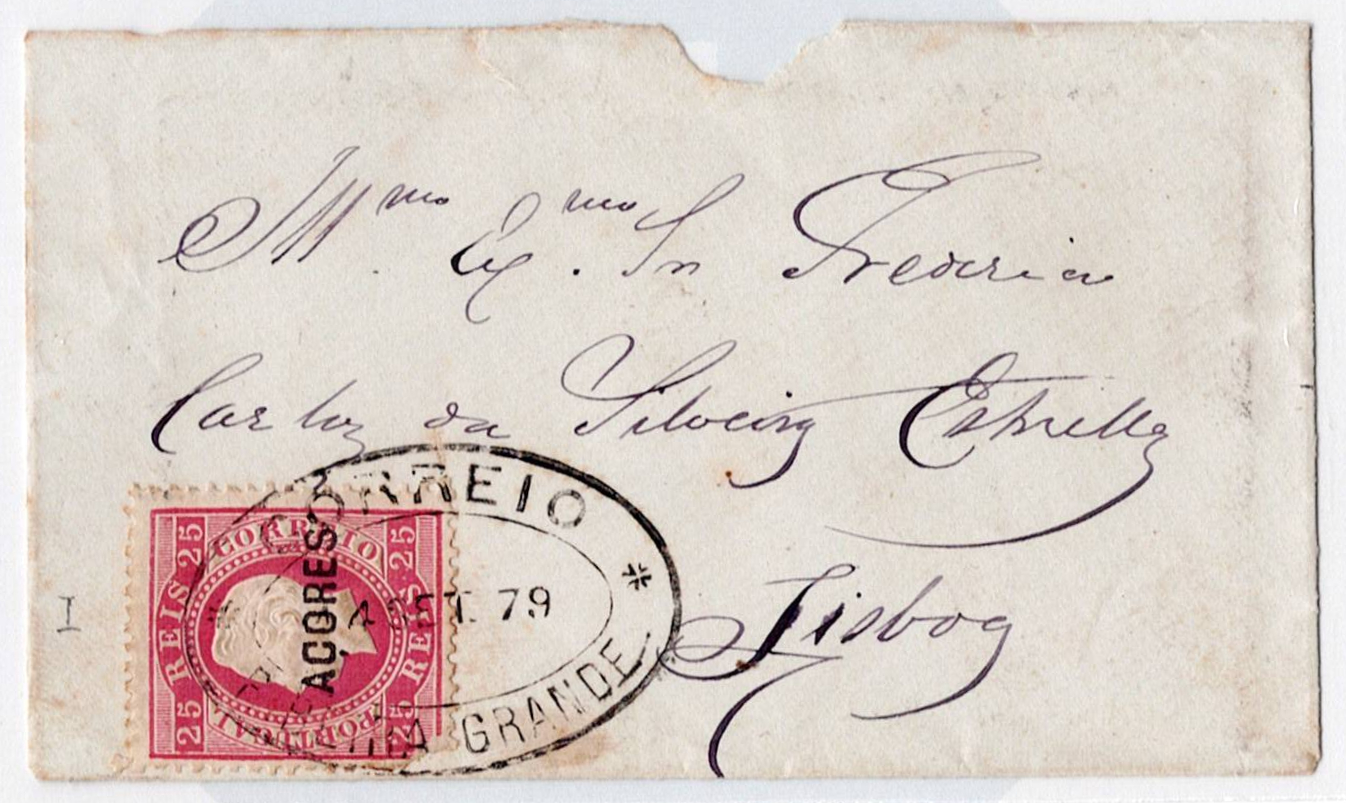 Illmo. Exmo. Sr Frederico
Carlos da Silveira Estrella
Lisboa
CORREIO
4 SET. 79
RIBEIRA GRANDE
CORREIO
25 REIS 25
25 REIS 25
PORTUGAL
AÇORES
I